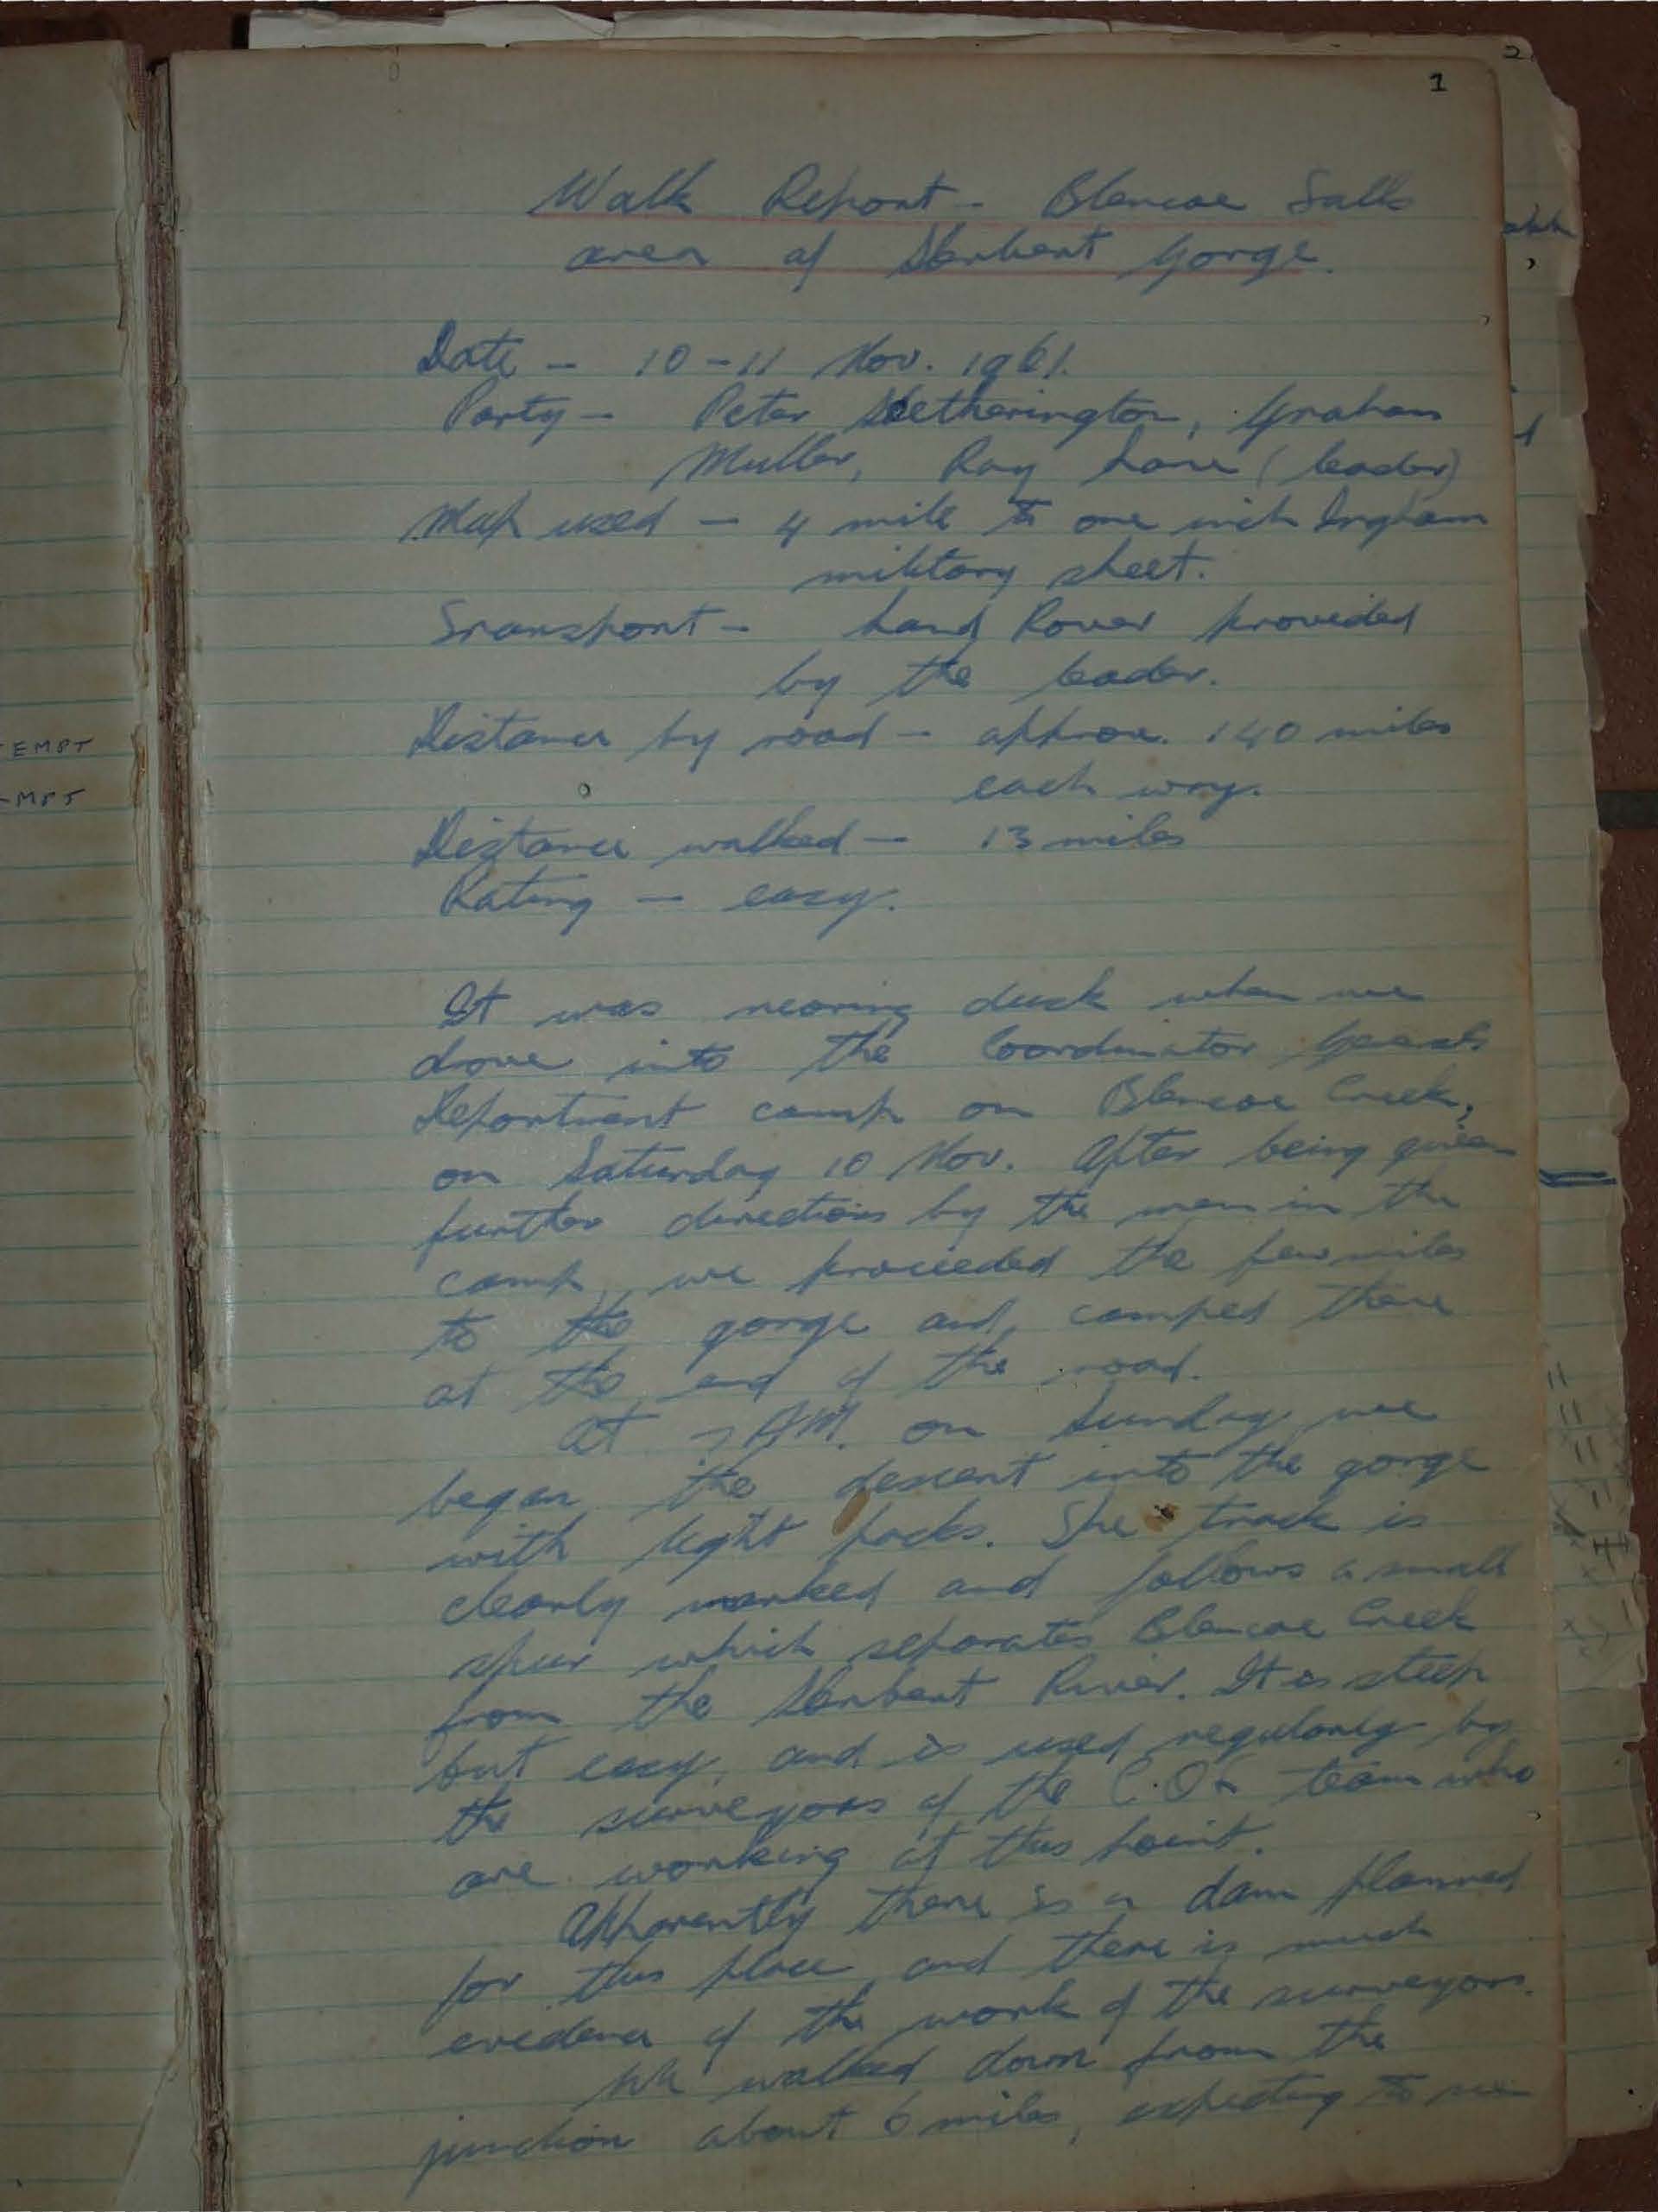 1
Walk Report - Blencoe Falls
area of Herbert Gorge.
Date - 10-11 Nov. 1961.
Party - Peter Hetherington, Graham
Muller, Ray Lane (leader)
Map used - 4 mile to one inch Ingham
military sheet.
Transport - Land Rover provided
by the leader.
Distance by road - approx. 140 miles
each way.
Distance walked - 13 miles
Rating - easy.
It was nearing dusk when we
drove into the Coordinator
Department camp on Blencoe Creek,
on Saturday 10 Nov. After being given
further directions by the men in the
camp, we proceeded the few miles
to the gorge and camped there
at the end of the road.
At 7 AM. on Sunday we
began the descent into the gorge
with light packs. The track is
clearly marked and follows a small
spur which separates Blencoe Creek
from the Herbert River. It is steep
but easy, and is used regularly by
the surveyors of the C.O.G team who
are working at this point.
Apparently there is a dam planned
for this place, and there is much
evidence of the work of the surveyors.
We walked down from the
junction about 6 miles, expecting to see
EMPT
MPT
2